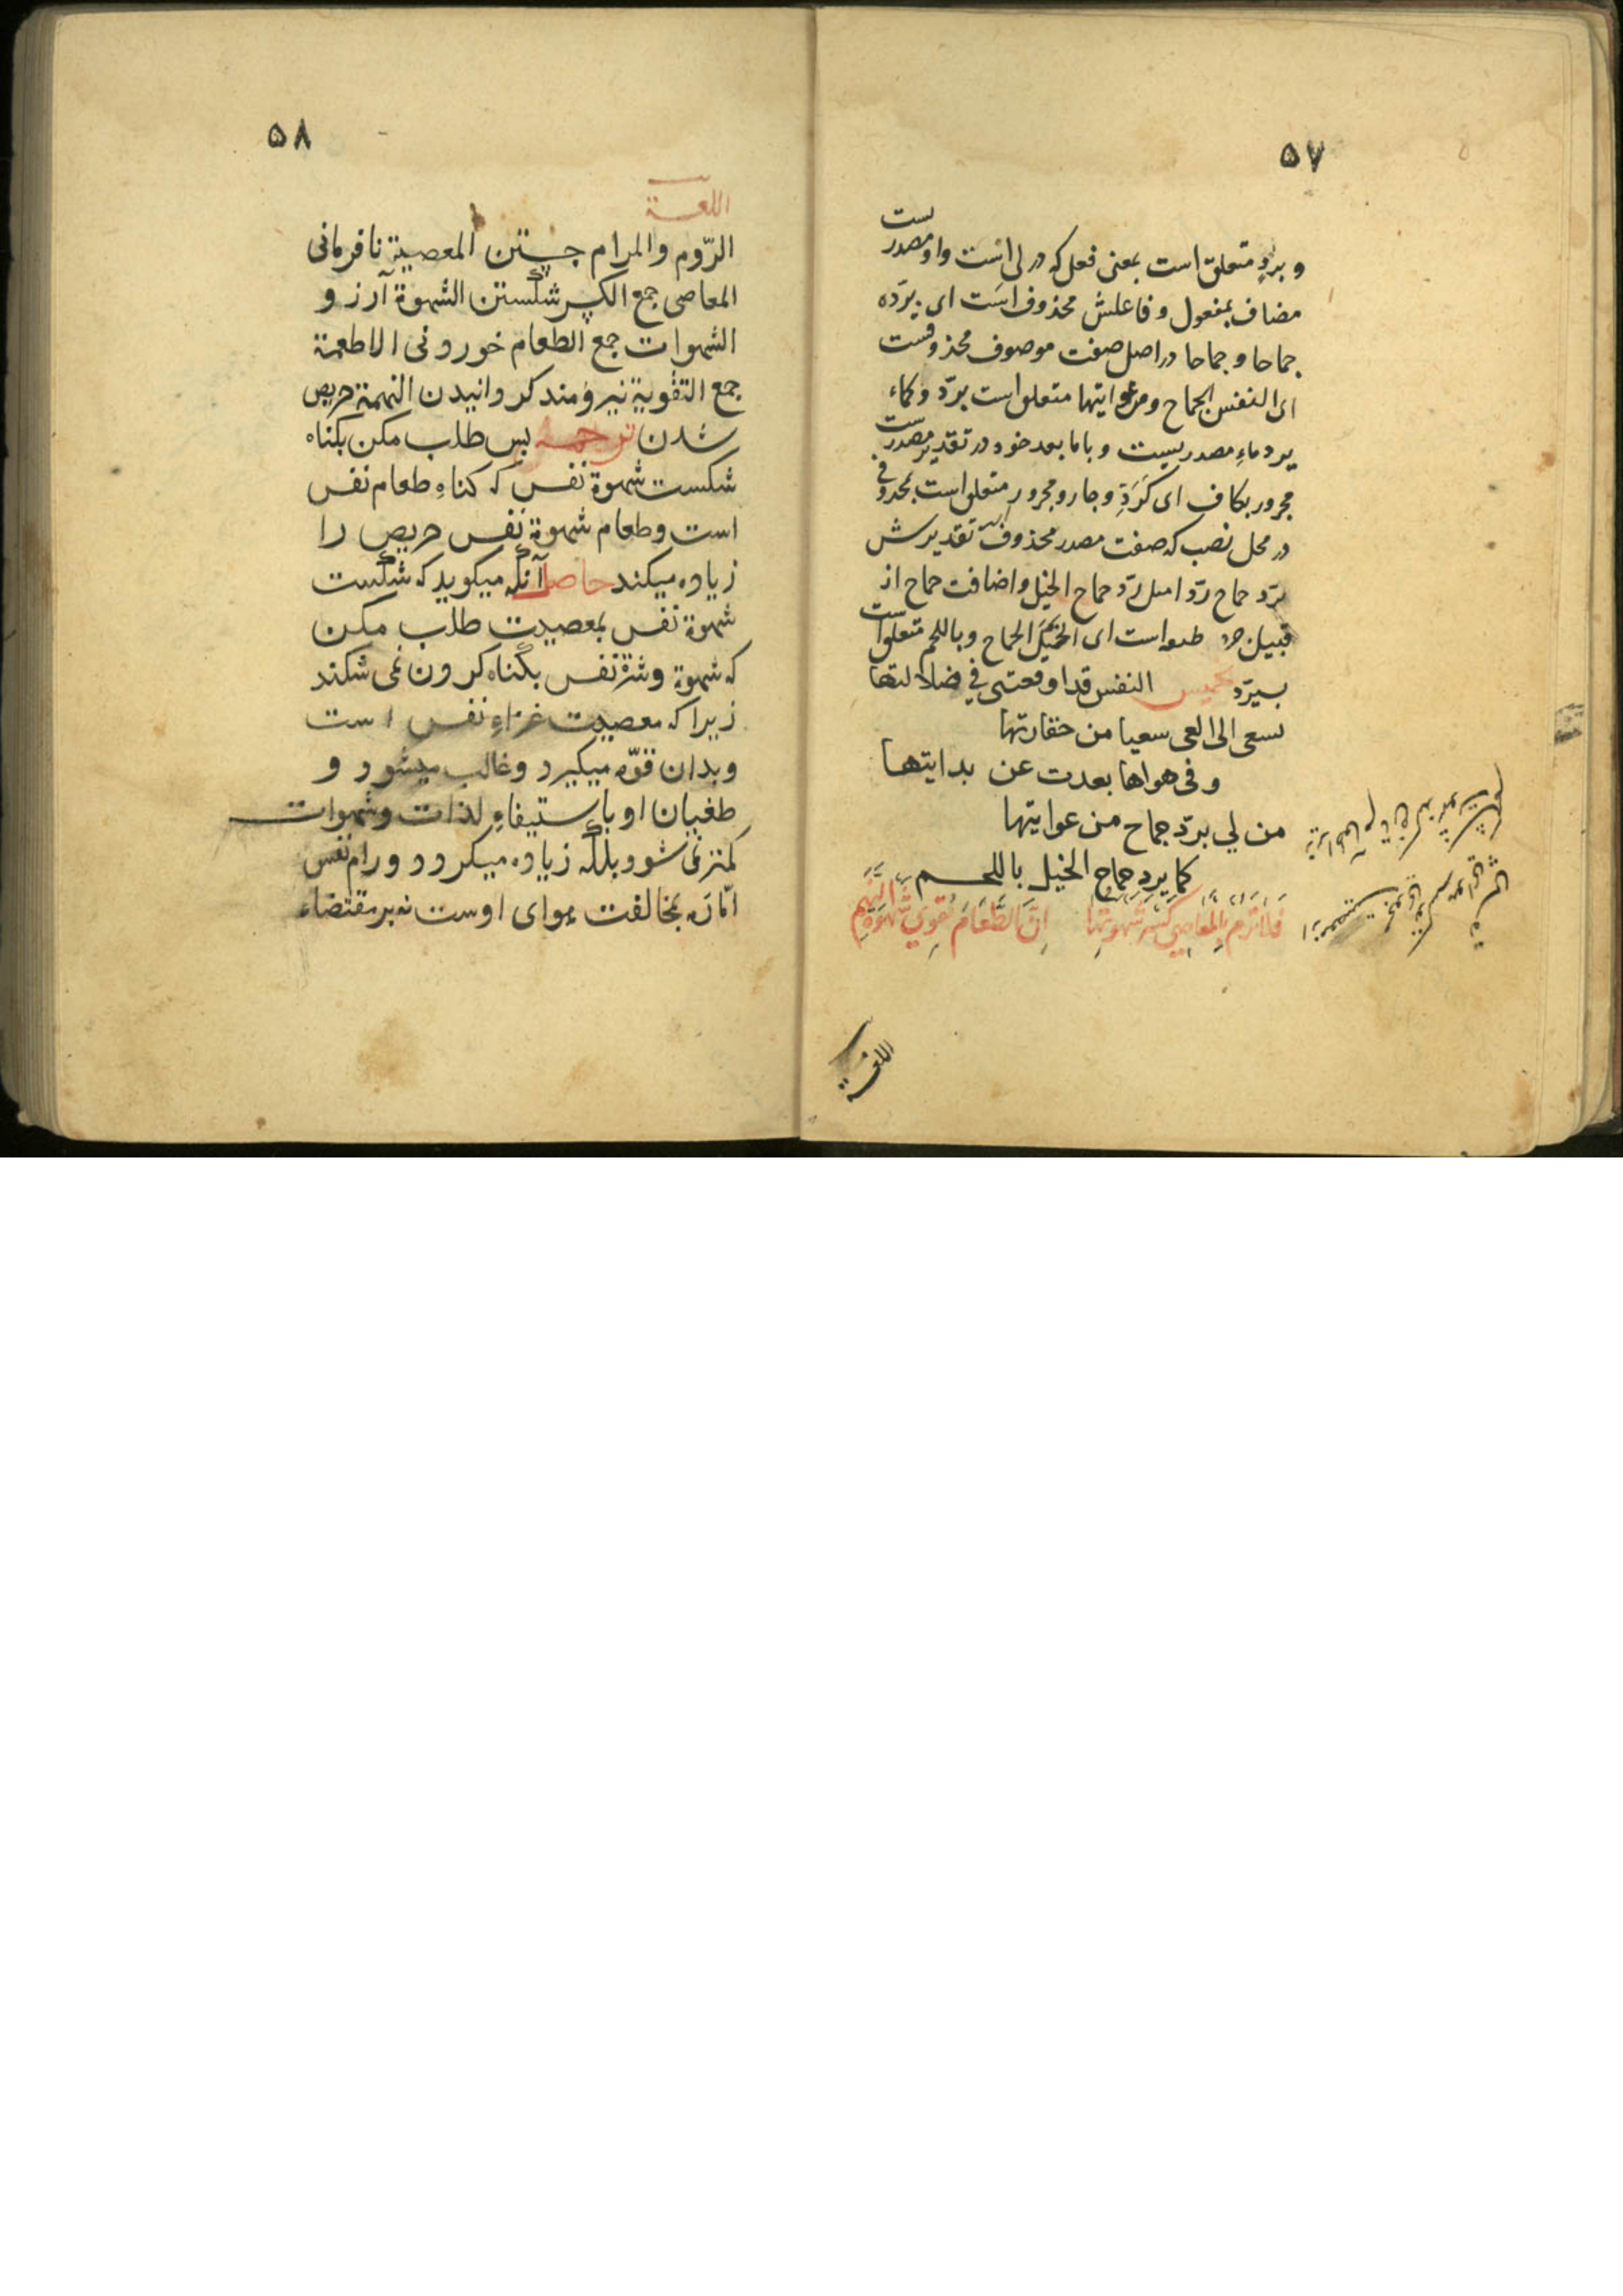 ۵۷
و بردٍ متعلق است بمعنی فعل که در لی است واو مصدر ست
مضاف بمفعول و فاعلش محذوف است ای بردّه
جماحا و جماحا در اصل صفت موصوف محذوفست
ای النفس الجماح ومن غوایتها متعلق است بردّ و کماء
یرد ماءِ مصدریست و باما بعد خود در تقدیر مصدرست
مجرور بکاف ای کَرَدِّ و جار و مجرور متعلق است بمحذوفی
در محل نصب که صفت مصدر محذوف است تقدیرش
بردّ جماح ردّا مثل ردّ جماح الخیل و اضافت جماح از
قبیل جرد است ای الخیل الجماح و باللجم متعلق است
بیردّ تخمیس النفس قد اوقعتنی فی ضلالتها
تسعی الی الغی سعیا من حقارتها
و فی هواها بعدت عن بدایتها
من لي بردّ جماح من غوایتها
کما یرد جماح الخیل باللجم
فَلَا تَرُمْ بِالْمَعَاصِي كَسْرَ شَهْوَتِهَا اِنَّ الطَّعَامَ يُقَوِّي شَهْوَةَ النَّهِمِ
اللغة
۵۸
اللغة
الرّوم والمرام جستن المعصیة نافرمانی
المعاصی جمع الکسر شکستن الشهوة آرزو
الشهوات جمع الطعام خوردنی الاطعمة
جمع التقویة نیرومند کردانیدن النهمة حریص
شدن ترجمه پس طلب مکن بکناه
شکست شهوة نفس که کناهِ طعام نفس
است و طعام شهوة نفس حریص را
زیاده میکند حاصل آنکه میکوید که شکست
شهوة نفس بمعصیت طلب مکن
که شهوة و شرّه نفس بکناه کردن نمی شکند
زیرا که معصیت غذاءِ نفس است
و بدان قوّه میکیرد و غالب میشود و
طغیان او باستیفاءِ لذات و شهوات
کمتر نمی شود بلکه زیاده میکردد و رام نفس
امّاره بمخالفت هوای اوست نه بر مقتضاء